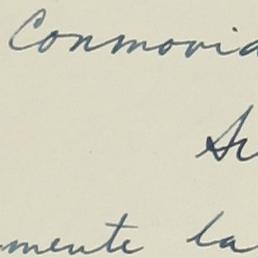 Conmovid
Su
mente la